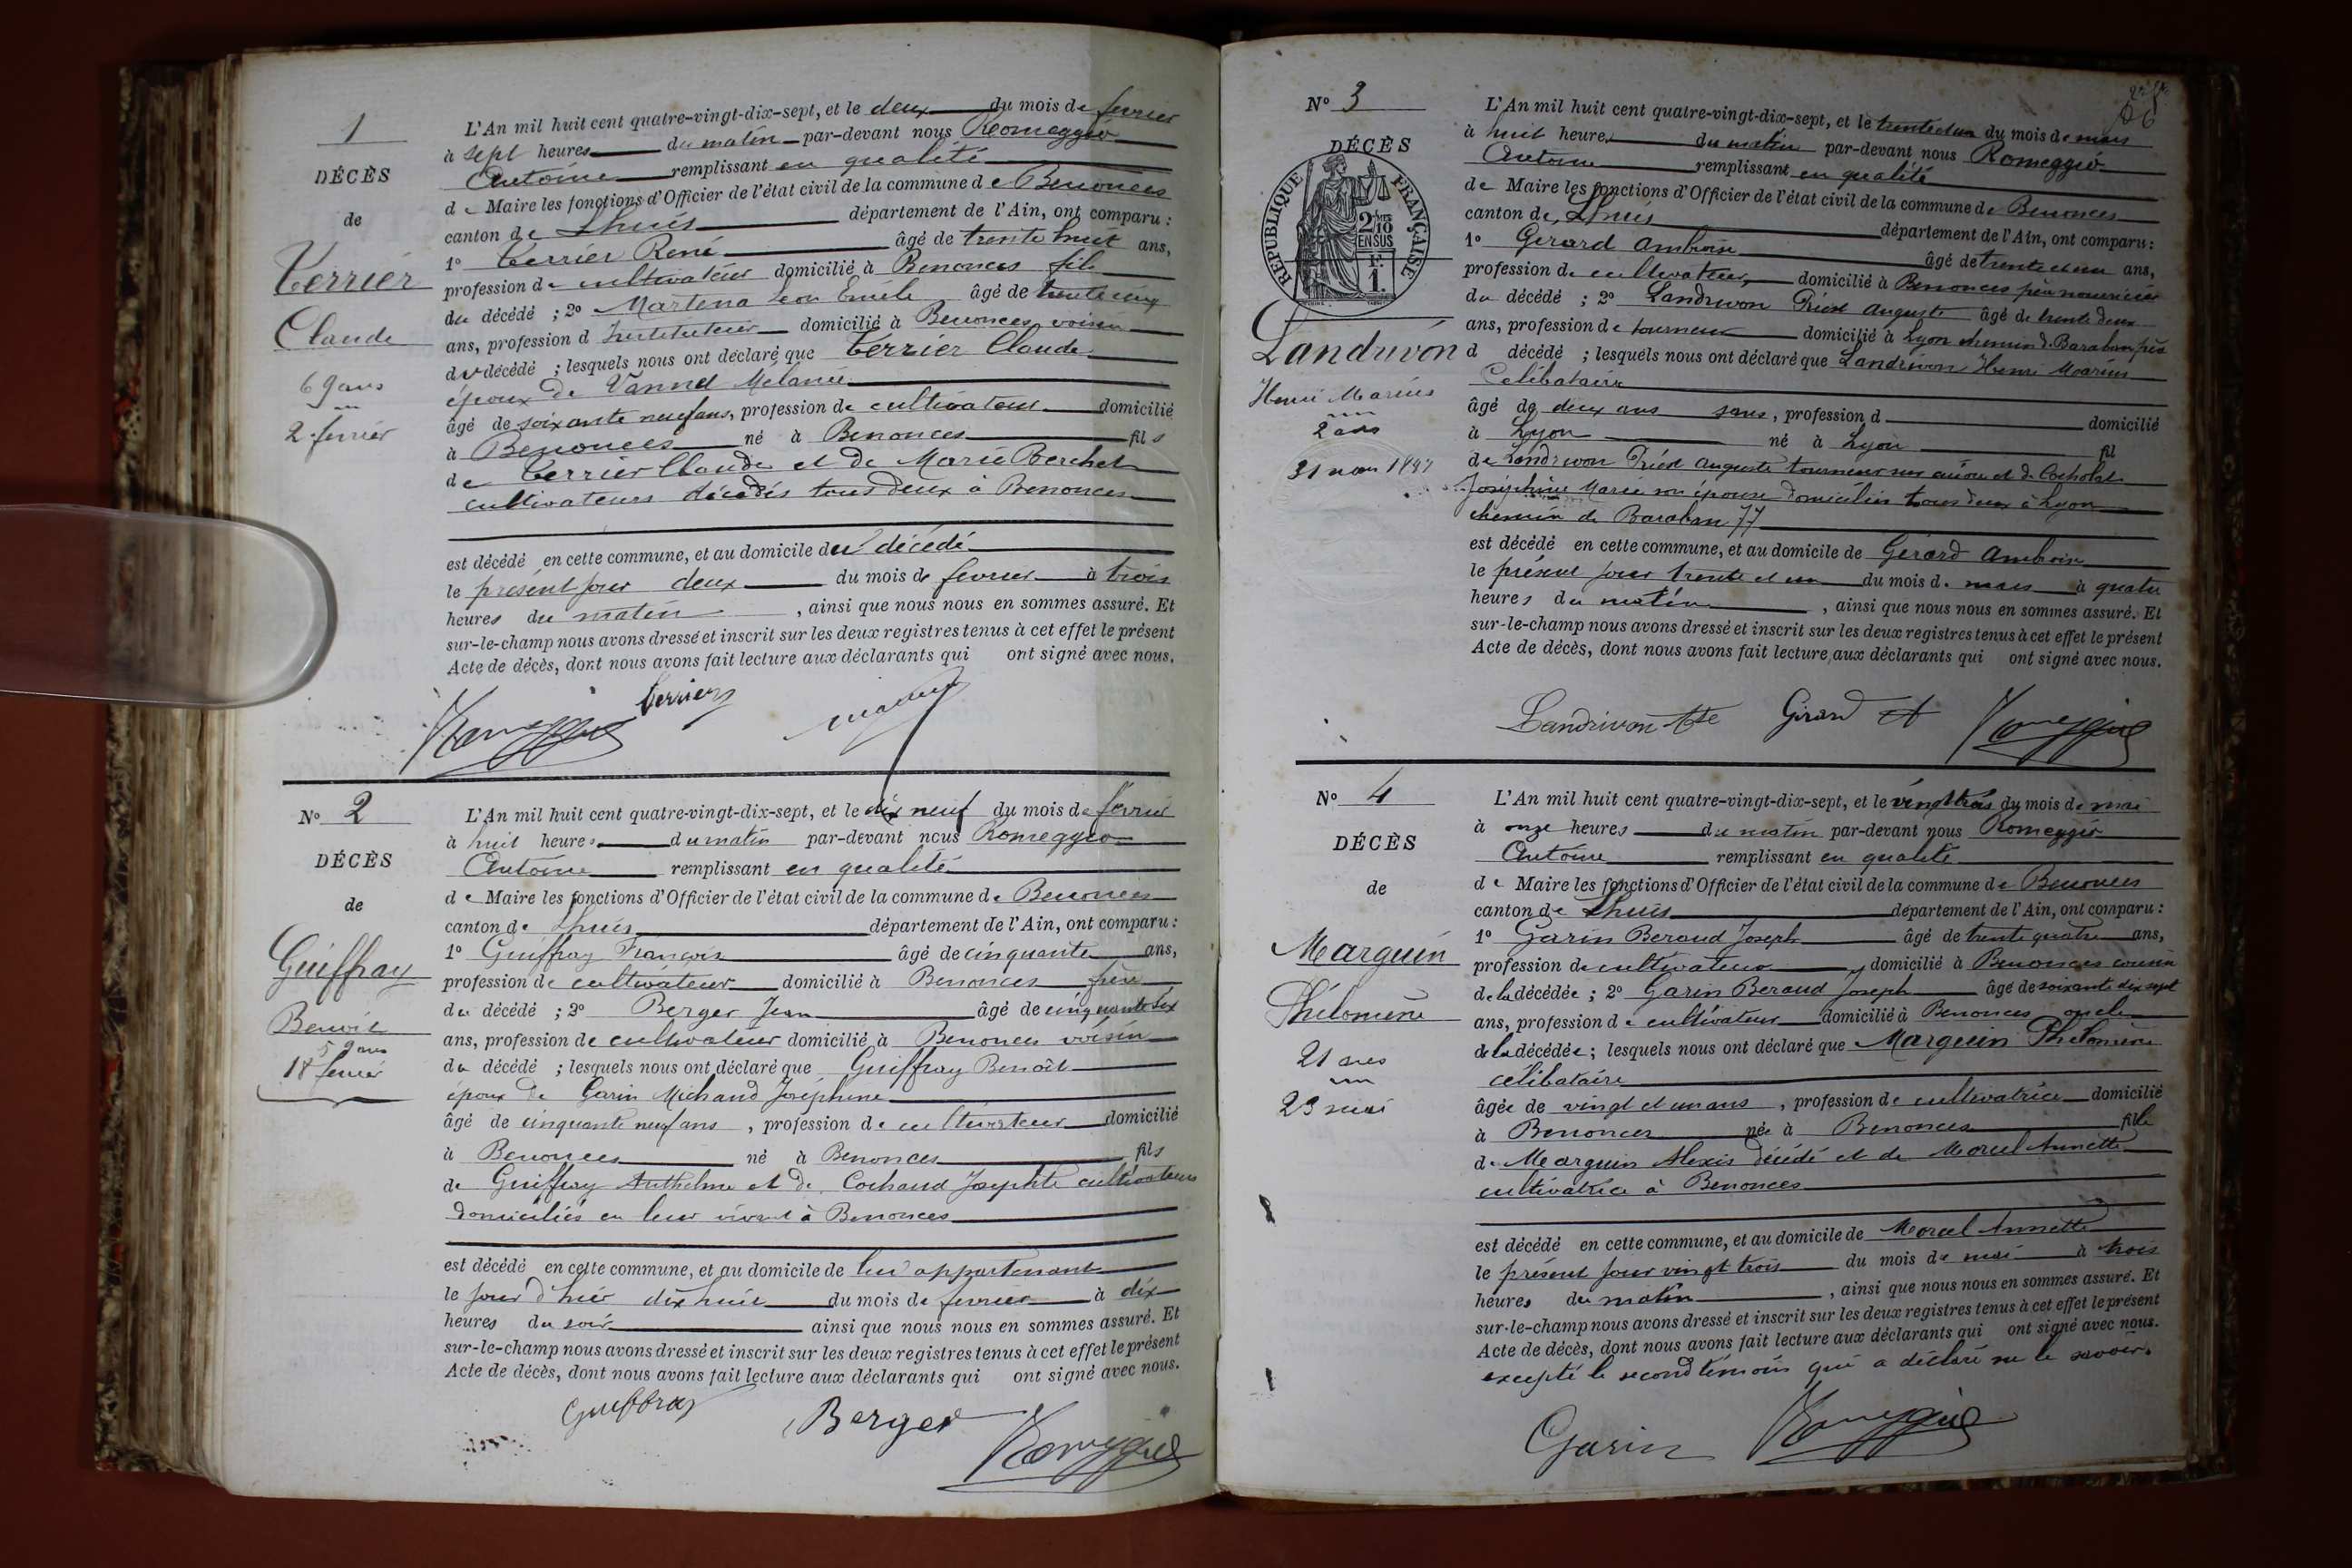 1
DÉCÈS
de
Terrier
Claude
69 ans
2 fevrier
L'An mil huit cent quatre-vingt-dix-sept, et le deux du mois de fevrier
à sept heures du matin par-devant nous Romeggio
Antoine remplissant en qualité
de Maire les fonctions d'Officier de l'état civil de la commune de Benonces
canton de Lhuis département de l'Ain, ont comparu :
1° Terrier René âgé de trente huit ans,
profession de cultivateur domicilié à Benonces fils
du décédé ; 2° Martena Leon Emile âgé de trente cinq
ans, profession d Instituteur domicilié à Benonces voisin
du décédé ; lesquels nous ont déclaré que Terrier Claude
époux de Vannel Mélanie
âgé de soixante neuf ans, profession de cultivateur domicilié
à Benonces né à Benonces fils
de Terrier Claude et de Marie Berchet
cultivateurs décédés tous deux à Benonces
est décédé en cette commune, et au domicile du décédé
le présent jour deux du mois de fevrier à trois
heures du matin , ainsi que nous nous en sommes assuré. Et
sur-le-champ nous avons dressé et inscrit sur les deux registres tenus à cet effet le présent
Acte de décès, dont nous avons fait lecture aux déclarants qui ont signé avec nous.
Romeggio Terrier
N° 2
DÉCÈS
de
Guiffray
Benoit
59 ans
18 fevrier
L'An mil huit cent quatre-vingt-dix-sept, et le dix neuf du mois de fevrier
à huit heures du matin par-devant nous Romeggio
Antoine remplissant en qualité
de Maire les fonctions d'Officier de l'état civil de la commune de Benonces
canton de Lhuis département de l'Ain, ont comparu :
1° Guiffray François âgé de cinquante ans,
profession de cultivateur domicilié à Benonces frère
du décédé ; 2° Berger Jean âgé de cinquante six
ans, profession de cultivateur domicilié à Benonces voisin
du décédé ; lesquels nous ont déclaré que Guiffray Benoît
époux de Garin Michaud Joséphine
âgé de cinquante neuf ans , profession de cultivateur domicilié
à Benonces né à Benonces fils
de Guiffray Anthelme et de Cochand Josephte cultivateurs
domiciliés en leur vivant à Benonces
est décédé en cette commune, et au domicile de lui appartenant
le jour d'hier dix huit du mois de fevrier à dix
heures du soir ainsi que nous nous en sommes assuré. Et
sur-le-champ nous avons dressé et inscrit sur les deux registres tenus à cet effet le présent
Acte de décès, dont nous avons fait lecture aux déclarants qui ont signé avec nous.
Guiffray Berger Romeggio
N° 3
DÉCÈS
RÉPUBLIQUE FRANÇAISE
2/10
EN SUS
F.
1.
Landrivon
Henri Marius
2 ans
31 mars 1897
L'An mil huit cent quatre-vingt-dix-sept, et le trente et un du mois de mars
à huit heures du matin par-devant nous Romeggio
Antoine remplissant en qualité
de Maire les fonctions d'Officier de l'état civil de la commune de Benonces
canton de Lhuis département de l'Ain, ont comparu :
1° Gérard Ambroise âgé de trente et un ans,
profession de cultivateur, domicilié à Benonces père nourricier
du décédé ; 2° Landrivon Priest Auguste âgé de trente deux
ans, profession de tourneur domicilié à Lyon chemin de Baraban père
d décédé ; lesquels nous ont déclaré que Landrivon Henri Marius
Célibataire
âgé de deux ans sans, profession d domicilié
à Lyon né à Lyon fil
de Landrivon Priest Auguste tourneur et de
Joséphine Marie son épouse domiciliés tous deux à Lyon
chemin de Baraban 77
est décédé en cette commune, et au domicile de Gérard Ambroise
le présent jour trente et un du mois de mars à quatre
heures du matin , ainsi que nous nous en sommes assuré. Et
sur-le-champ nous avons dressé et inscrit sur les deux registres tenus à cet effet le présent
Acte de décès, dont nous avons fait lecture aux déclarants qui ont signé avec nous.
Landrivon Girard A Romeggio
N° 4
DÉCÈS
de
Marguin
Philomène
21 ans
23 mai
L'An mil huit cent quatre-vingt-dix-sept, et le vingt trois du mois de mai
à onze heures du matin par-devant nous Romeggio
Antoine remplissant en qualité
de Maire les fonctions d'Officier de l'état civil de la commune de Benonces
canton de Lhuis département de l'Ain, ont comparu :
1° Garin Beraud Joseph âgé de trente quatre ans,
profession de cultivateur domicilié à Benonces cousin
de la décédée ; 2° Garin Beraud Joseph âgé de soixante dix sept
ans, profession de cultivateur domicilié à Benonces oncle
de la décédée ; lesquels nous ont déclaré que Marguin Philomène
célibataire
âgée de vingt et un ans , profession de cultivatrice domicilié
à Benonces née à Benonces fille
de Marguin Alexis décédé et de Morcel Annette
cultivatrice à Benonces
est décédé en cette commune, et au domicile de Morcel Annette
le présent jour vingt trois du mois de mai à trois
heures du matin , ainsi que nous nous en sommes assuré. Et
sur-le-champ nous avons dressé et inscrit sur les deux registres tenus à cet effet le présent
Acte de décès, dont nous avons fait lecture aux déclarants qui ont signé avec nous.
excepté le second témoin qui a déclaré ne le savoir.
Garin Romeggio